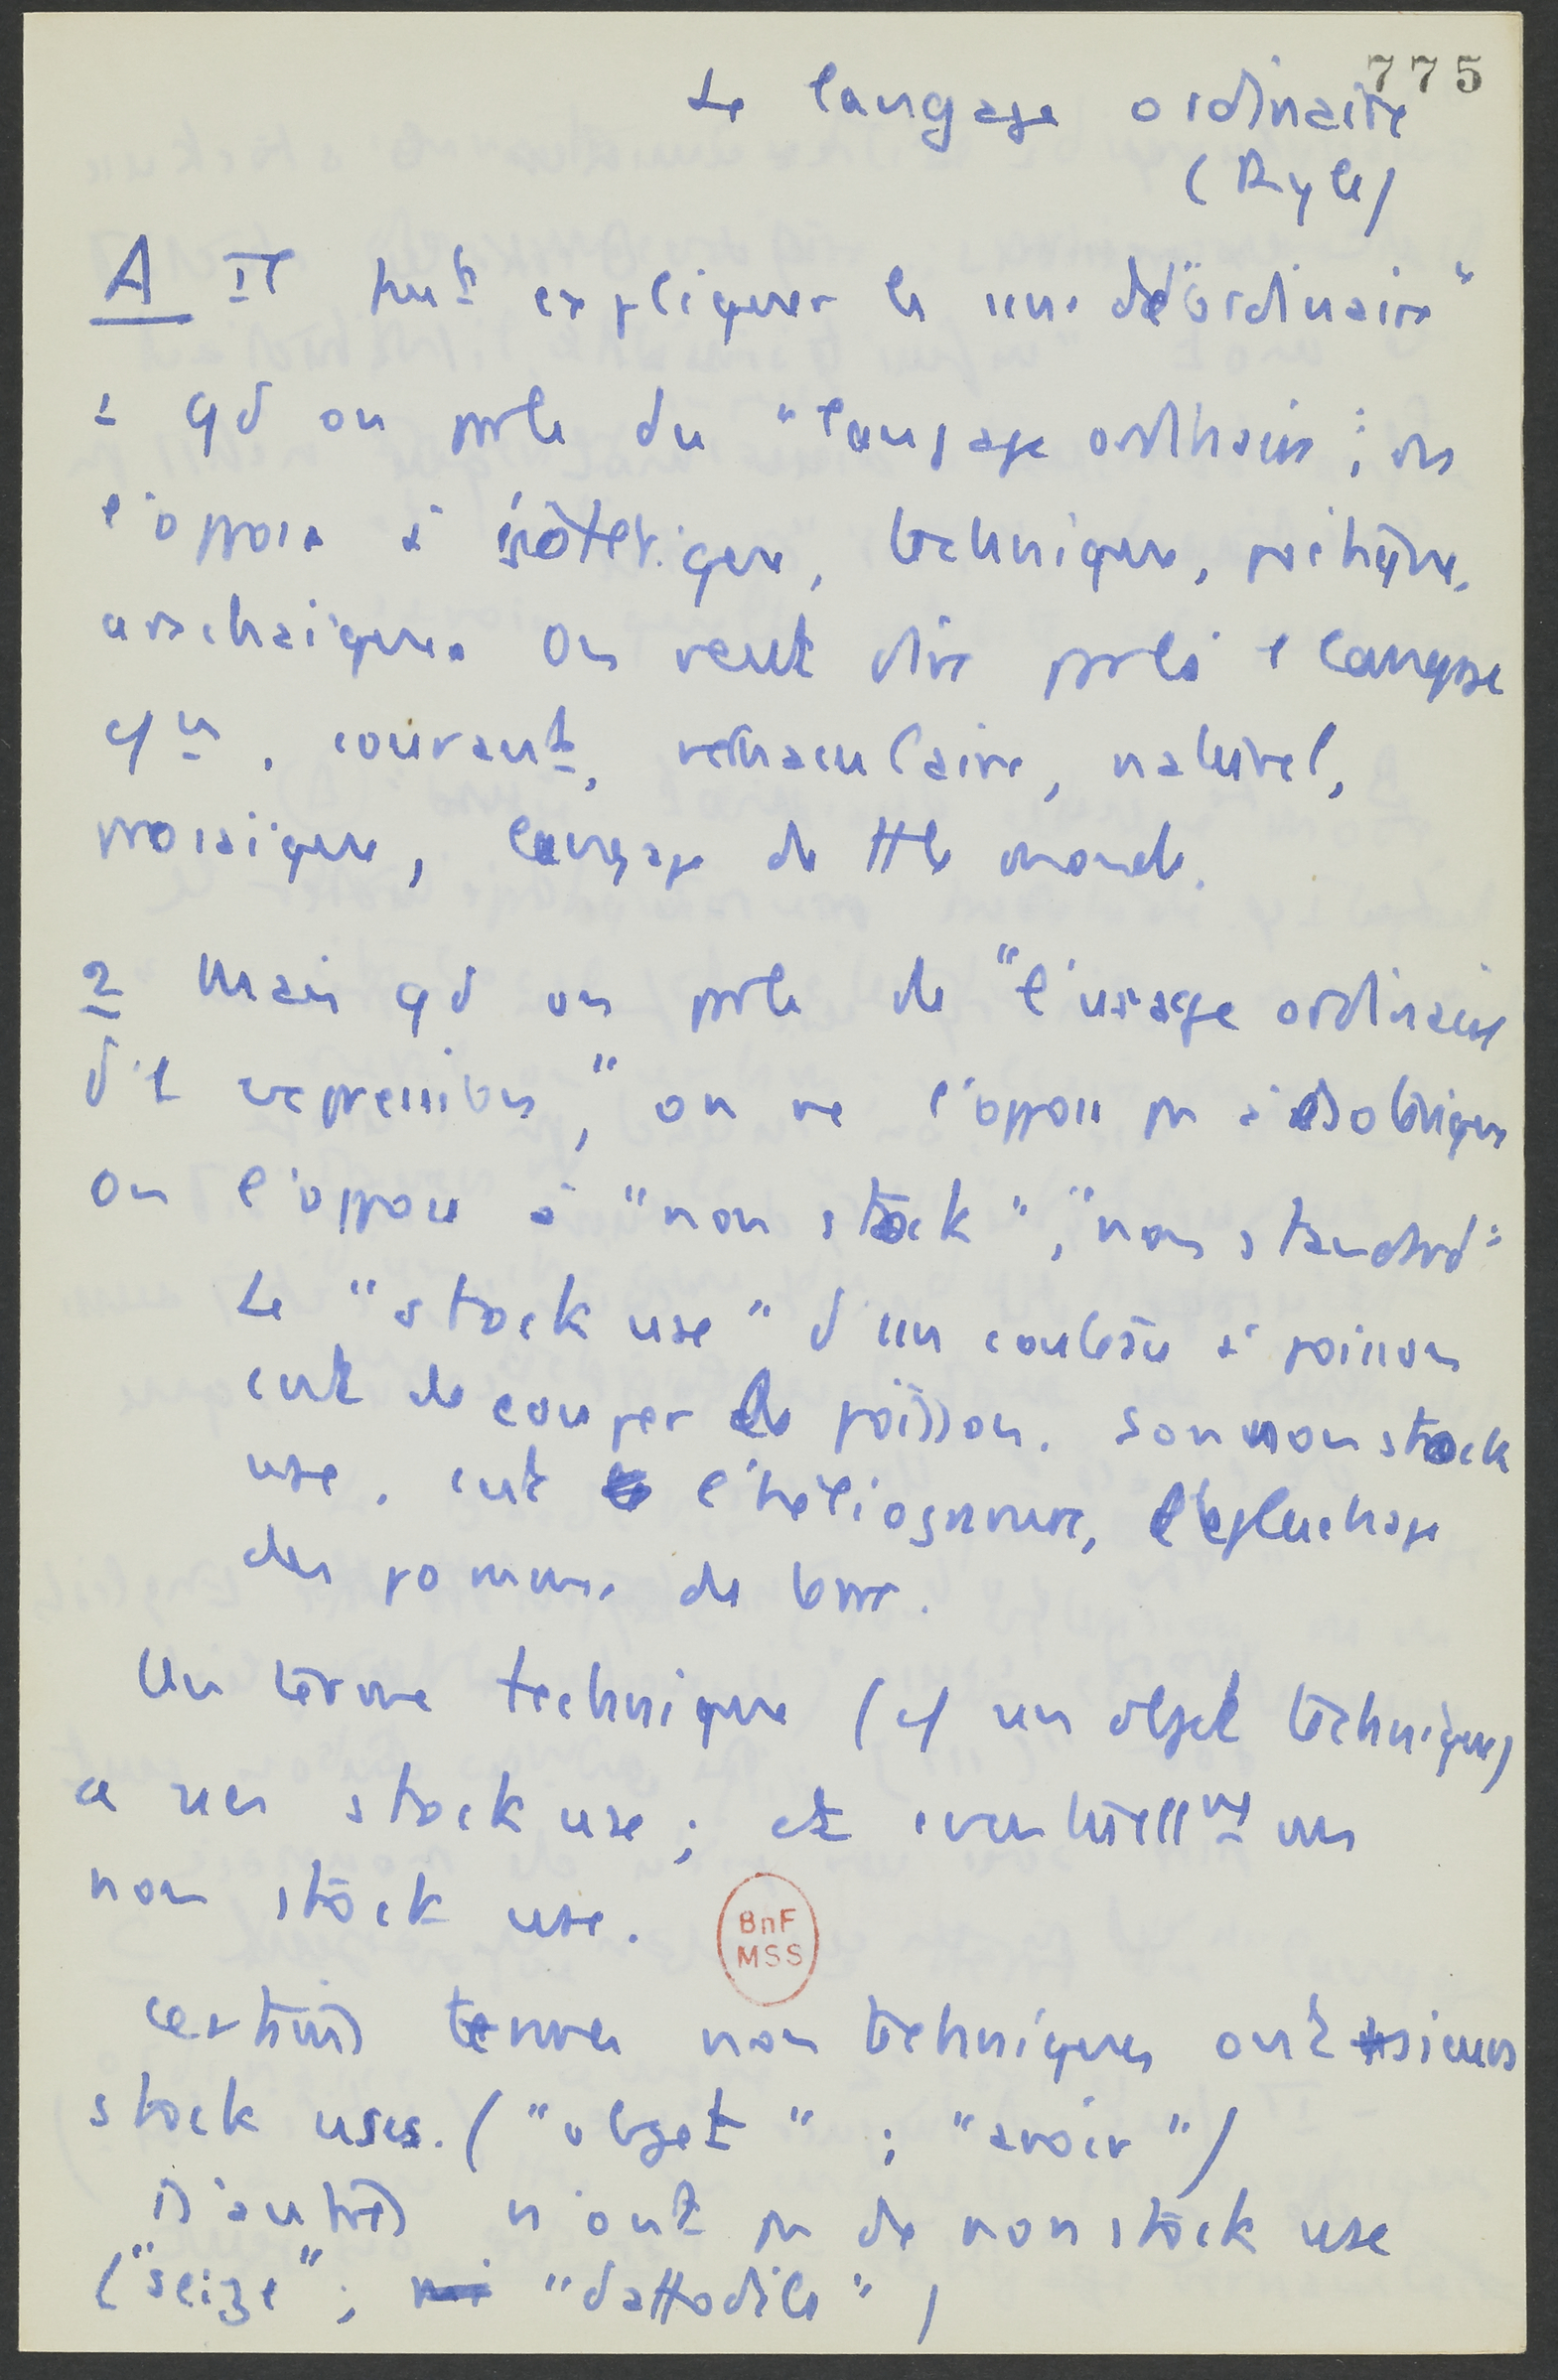 775
Le langage ordinaire
(Ryle)
A Il faut expliquer le sens de "ordinaire"
1 qd on parle du "langage ordinaire": on
l'oppose à ésotérique, technique, poétique,
archaïque. On veut dire par là 1 langage
cˢⁿ, courant, vernaculaire, naturel,
prosaïque, langage de tt le monde.
2 Mais qd on parle de "l'usage ordinaire
d'1 expression," on ne l'oppose pas à ésotérique
on l'oppose à "non stock", "non standard":
Le "stock use" d'un couteau à poisson
c'est de couper le poisson. Son non stock
use, c'est l'héliogravure, l'épluchage
des pommes de terre.
Un terme technique (cf un objet technique)
a un stock use; et éventuellᵗ un
non stock use.
BnF
MSS
Certains termes non techniques ont +sieurs
stock uses. ("objet"; "avoir")
D'autres n'ont pas de non stock use
("seize"; "daffodile")